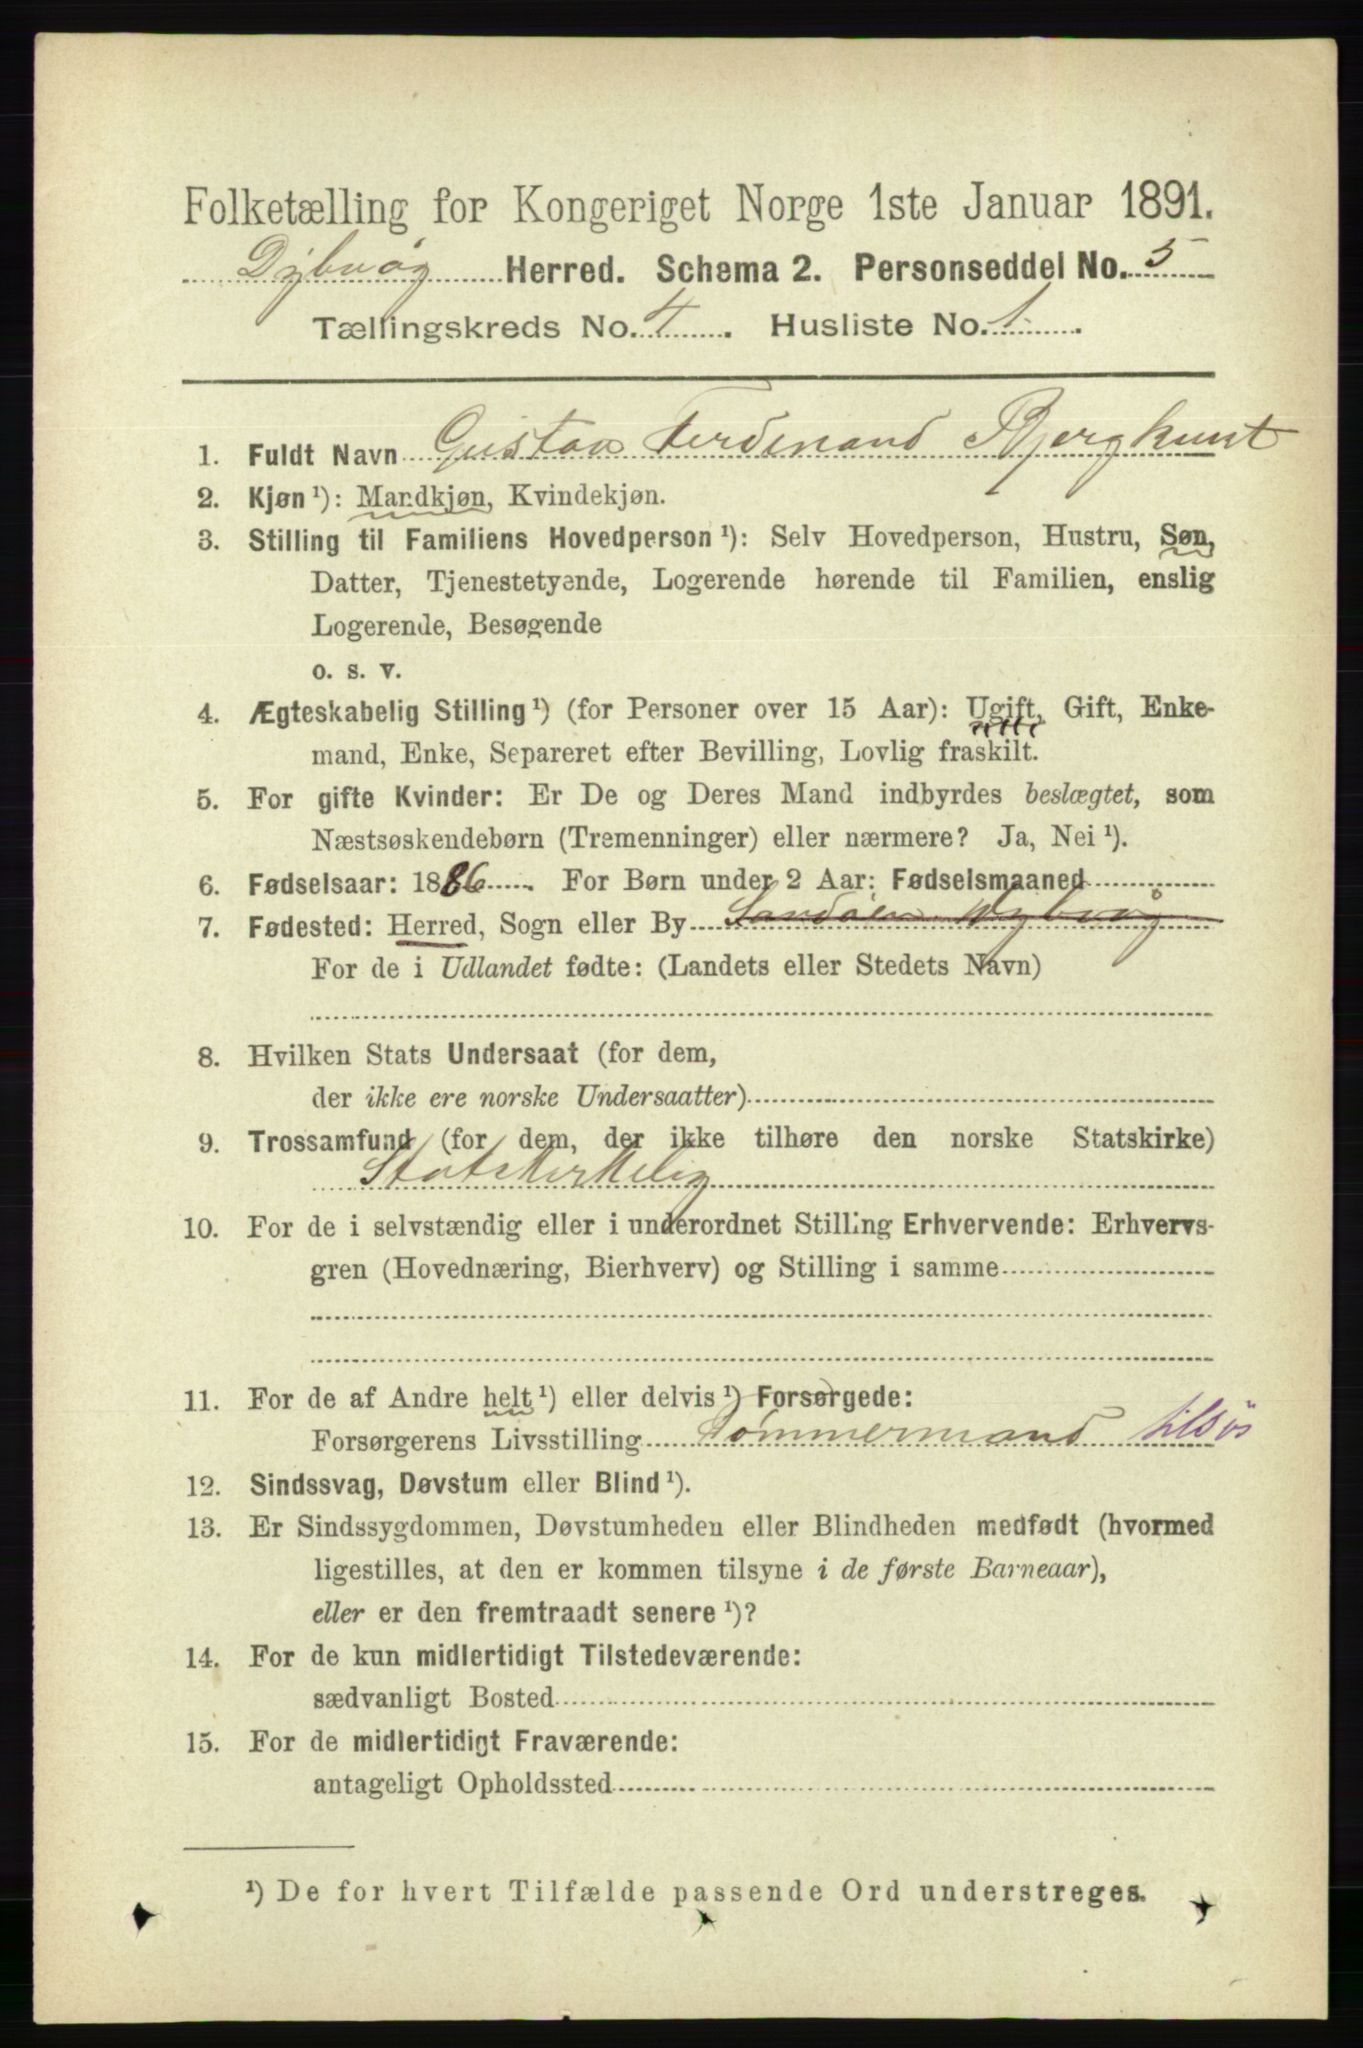 Folketælling for Kongeriget Norge 1ste Januar 1891.
Dybvåg Herred. Schema 2. Personseddel No. 5
Tællingskreds No. 4. Husliste No. 1.
1. Fuldt Navn Gustav Ferdinand Bjergkunt
2. Kjøn ¹): Mandkjøn, Kvindekjøn.
3. Stilling til Familiens Hovedperson ¹): Selv Hovedperson, Hustru, Søn,
Datter, Tjenestetyende, Logerende hørende til Familien, enslig
Logerende, Besøgende
o. s. v.
4. Ægteskabelig Stilling ¹) (for Personer over 15 Aar): Ugift, Gift, Enke-
mand, Enke, Separeret efter Bevilling, Lovlig fraskilt.
5. For gifte Kvinder: Er De og Deres Mand indbyrdes beslægtet, som
Næstsøskendebørn (Tremenninger) eller nærmere? Ja, Nei ¹).
6. Fødselsaar: 1886. For Børn under 2 Aar: Fødselsmaaned
7. Fødested: Herred, Sogn eller By Sandøen Dybvåg
For de i Udlandet fødte: (Landets eller Stedets Navn)
8. Hvilken Stats Undersaat (for dem,
der ikke ere norske Undersaatter)
9. Trossamfund (for dem, der ikke tilhøre den norske Statskirke)
Statskirkelig
10. For de i selvstændig eller i underordnet Stilling Erhvervende: Erhvervs-
gren (Hovednæring, Bierhverv) og Stilling i samme
11. For de af Andre helt ¹) eller delvis ¹) Forsørgede:
Forsørgerens Livsstilling Tømmermand tilsös
12. Sindssvag, Døvstum eller Blind ¹).
13. Er Sindssygdommen, Døvstumheden eller Blindheden medfødt (hvormed
ligestilles, at den er kommen tilsyne i de første Barneaar),
eller er den fremtraadt senere ¹)?
14. For de kun midlertidigt Tilstedeværende:
sædvanligt Bosted
15. For de midlertidigt Fraværende:
antageligt Opholdssted
¹) De for hvert Tilfælde passende Ord understreges.